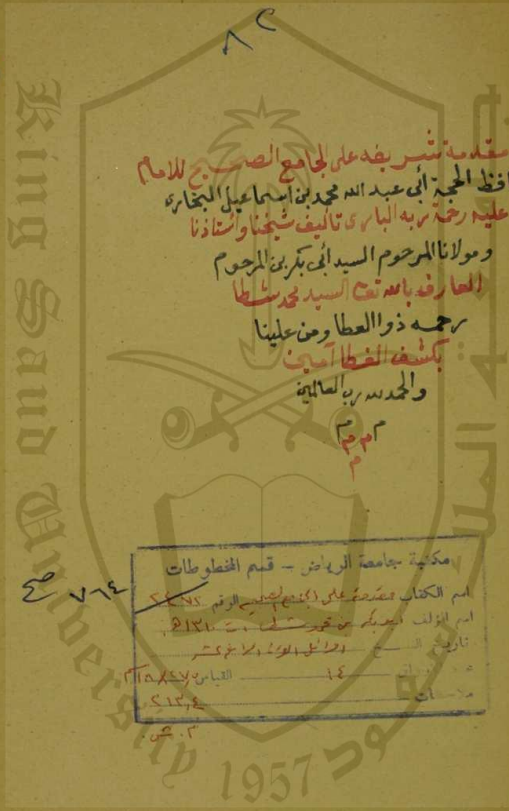 ٨٢
مقدمة شريفه على الجامع الصحيح للامام
افظ الحجة أبي عبد الله محمد بن اسماعيل البخاري
عليه رحمة ربه الباري تأليف شيخنا واستاذنا
ومولانا المرحوم السيد أبي بكر بن المرحوم
العارف بالله تعا السيد محمد شطا
رحمه ذوا العطا ومن علينا
بكشف الغطا آمين
والحمد لله رب العالمين
م م م
م
مكتبة جامعة الرياض - قسم المخطوطات
اسم الكتاب مقدمة على الجامع الصحيح الرقم
اسم المؤلف ابو بكر بن محمد شطا ت ١٣١٠هـ
تاريخ النسخ
١٤ القياس
ملاحظات ٢١٣,٤
م. ش.
٧٦٤
King Saud University
1957